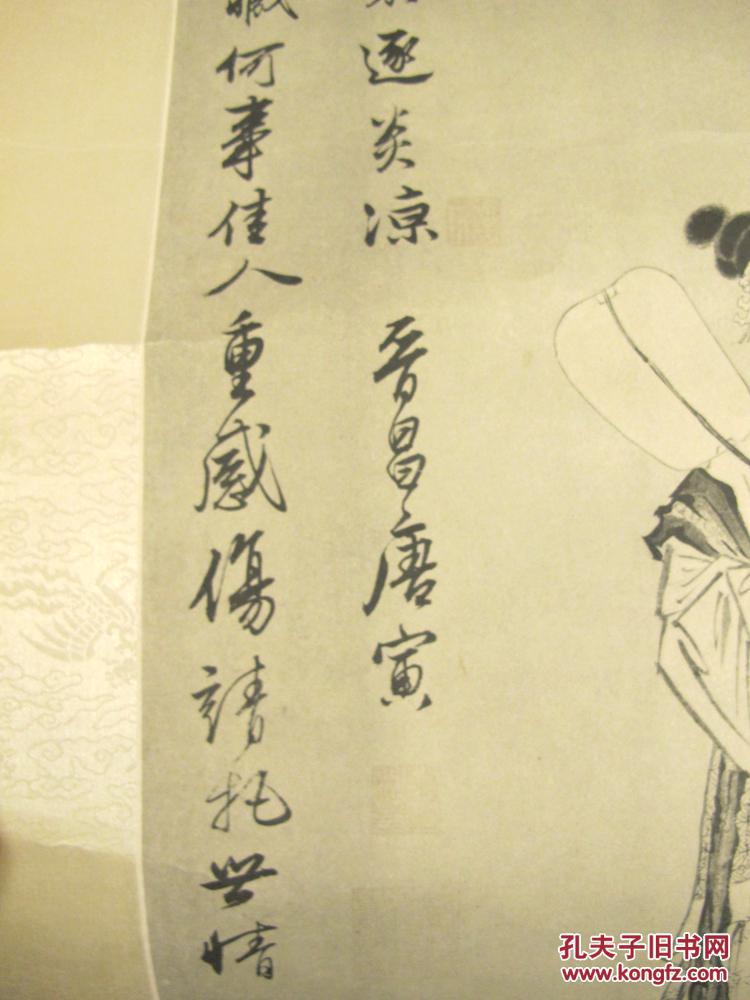 藏何事佳人重感傷請把世情
逐炎涼 晉昌唐寅
孔夫子旧书网
www.kongfz.com